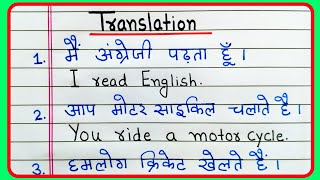 Translation
1. मैं अंग्रेजी पढ़ता हूँ।
I read English.
2. आप मोटर साइकिल चलाते है।
You ride a motorcycle.
3. हमलोग क्रिकेट खेलते हैं।